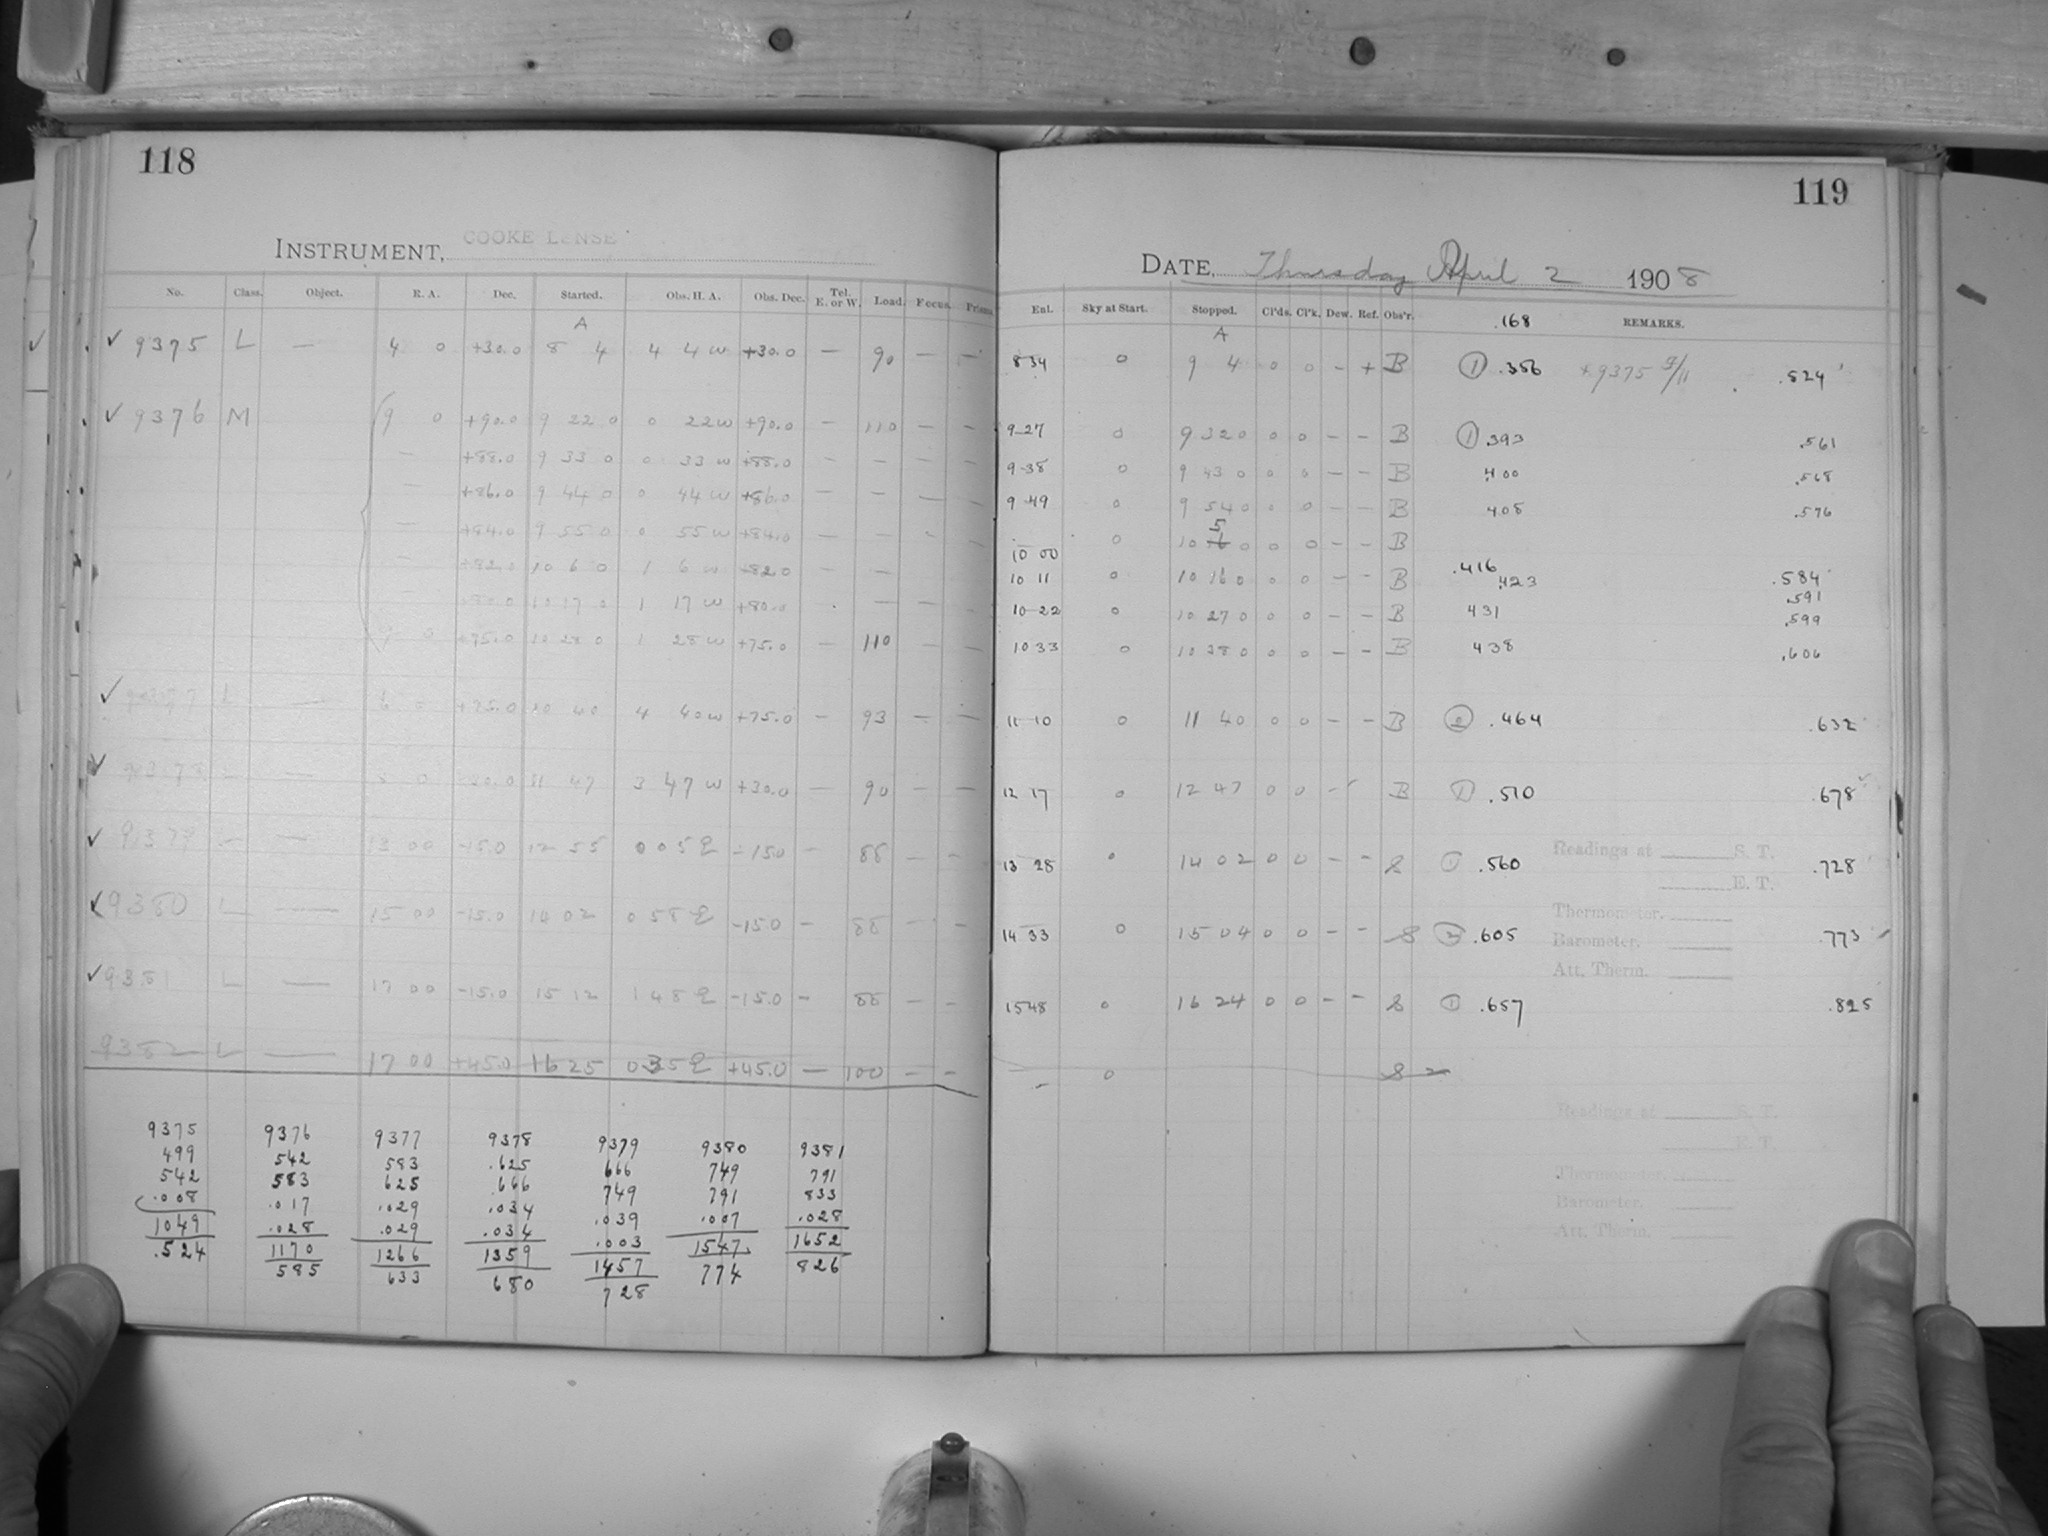 118
INSTRUMENT, COOKE LENSE
No. Class. Object. R. A. Dec. Started. Obs. H. A. Obs. Dec. Tel. E. or W. Load. Focus. Prisms
A
✓ 9375 L — 4 0 +30.0 8 4 4 4 W +30.0 — 90 — —
✓ 9376 M 9 0 +90.0 9 22 0 0 22 W +90.0 — 110 — —
— +88.0 9 33 0 0 33 W +88.0 — — — —
— +86.0 9 44 0 0 44 W +86.0 — — — —
— +84.0 9 55 0 0 55 W +84.0 — — — —
— +82.0 10 6 0 1 6 W +82.0 — — — —
— +80.0 10 17 0 1 17 W +80.0 — — —
9 0 +75.0 10 28 0 1 28 W +75.0 — 110 — —
✓ 9377 L — 6 0 +75.0 10 40 4 40 W +75.0 — 93 — —
✓ 9378 L — 8 0 +30.0 11 47 3 47 W +30.0 — 90 — —
✓ 9379 — — 13 00 -15.0 12 55 0 05 E -15.0 — 88 — —
✓ 9380 L — 15 00 -15.0 14 02 0 58 E -15.0 — 88 — —
✓ 9381 L — 17 00 -15.0 15 12 1 48 E -15.0 — 88 — —
9382 L — 17 00 +45.0 16 25 0 35 E +45.0 — 100 — —
9375 9376 9377 9378 9379 9380 9381
499 542 583 .625 666 749 791
542 583 625 .666 749 791 833
.008 .017 .029 .034 .039 .007 .028
1049 .028 .029 .034 .003 1547 1652
.524 1170 1266 1359 1457 774 826
585 633 680 728
119
DATE, Thursday April 2 1908
Enl. Sky at Start. Stopped. Cl'ds. Cl'k. Dew. Ref. Obs'r. .168 REMARKS.
A
8 34 0 9 4 0 0 — + B ① .356 +9375 9/11 .524
9 27 0 9 32 0 0 0 — — B ① .393 .561
9 38 0 9 43 0 0 0 — — B .400 .568
9 49 0 9 54 0 0 0 — — B .408 .576
5
10 00 0 10 6 0 0 0 — — B .416 .584
10 11 0 10 16 0 0 0 — — B .423 .591
10 22 0 10 27 0 0 0 — — B 431 .599
10 33 0 10 38 0 0 0 — — B 438 .606
11 10 0 11 40 0 0 — — B ② .464 .632
12 17 0 12 47 0 0 — B ① .510 .678
13 28 0 14 02 0 0 — — S ① .560 .728
14 33 0 15 04 0 0 — — S ② .605 .773
15 48 0 16 24 0 0 — — S ① .657 .825
— 0 S
Readings at S. T.
E. T.
Thermometer.
Barometer.
Att. Therm.
Readings at S. T.
E. T.
Thermometer.
Barometer.
Att. Therm.